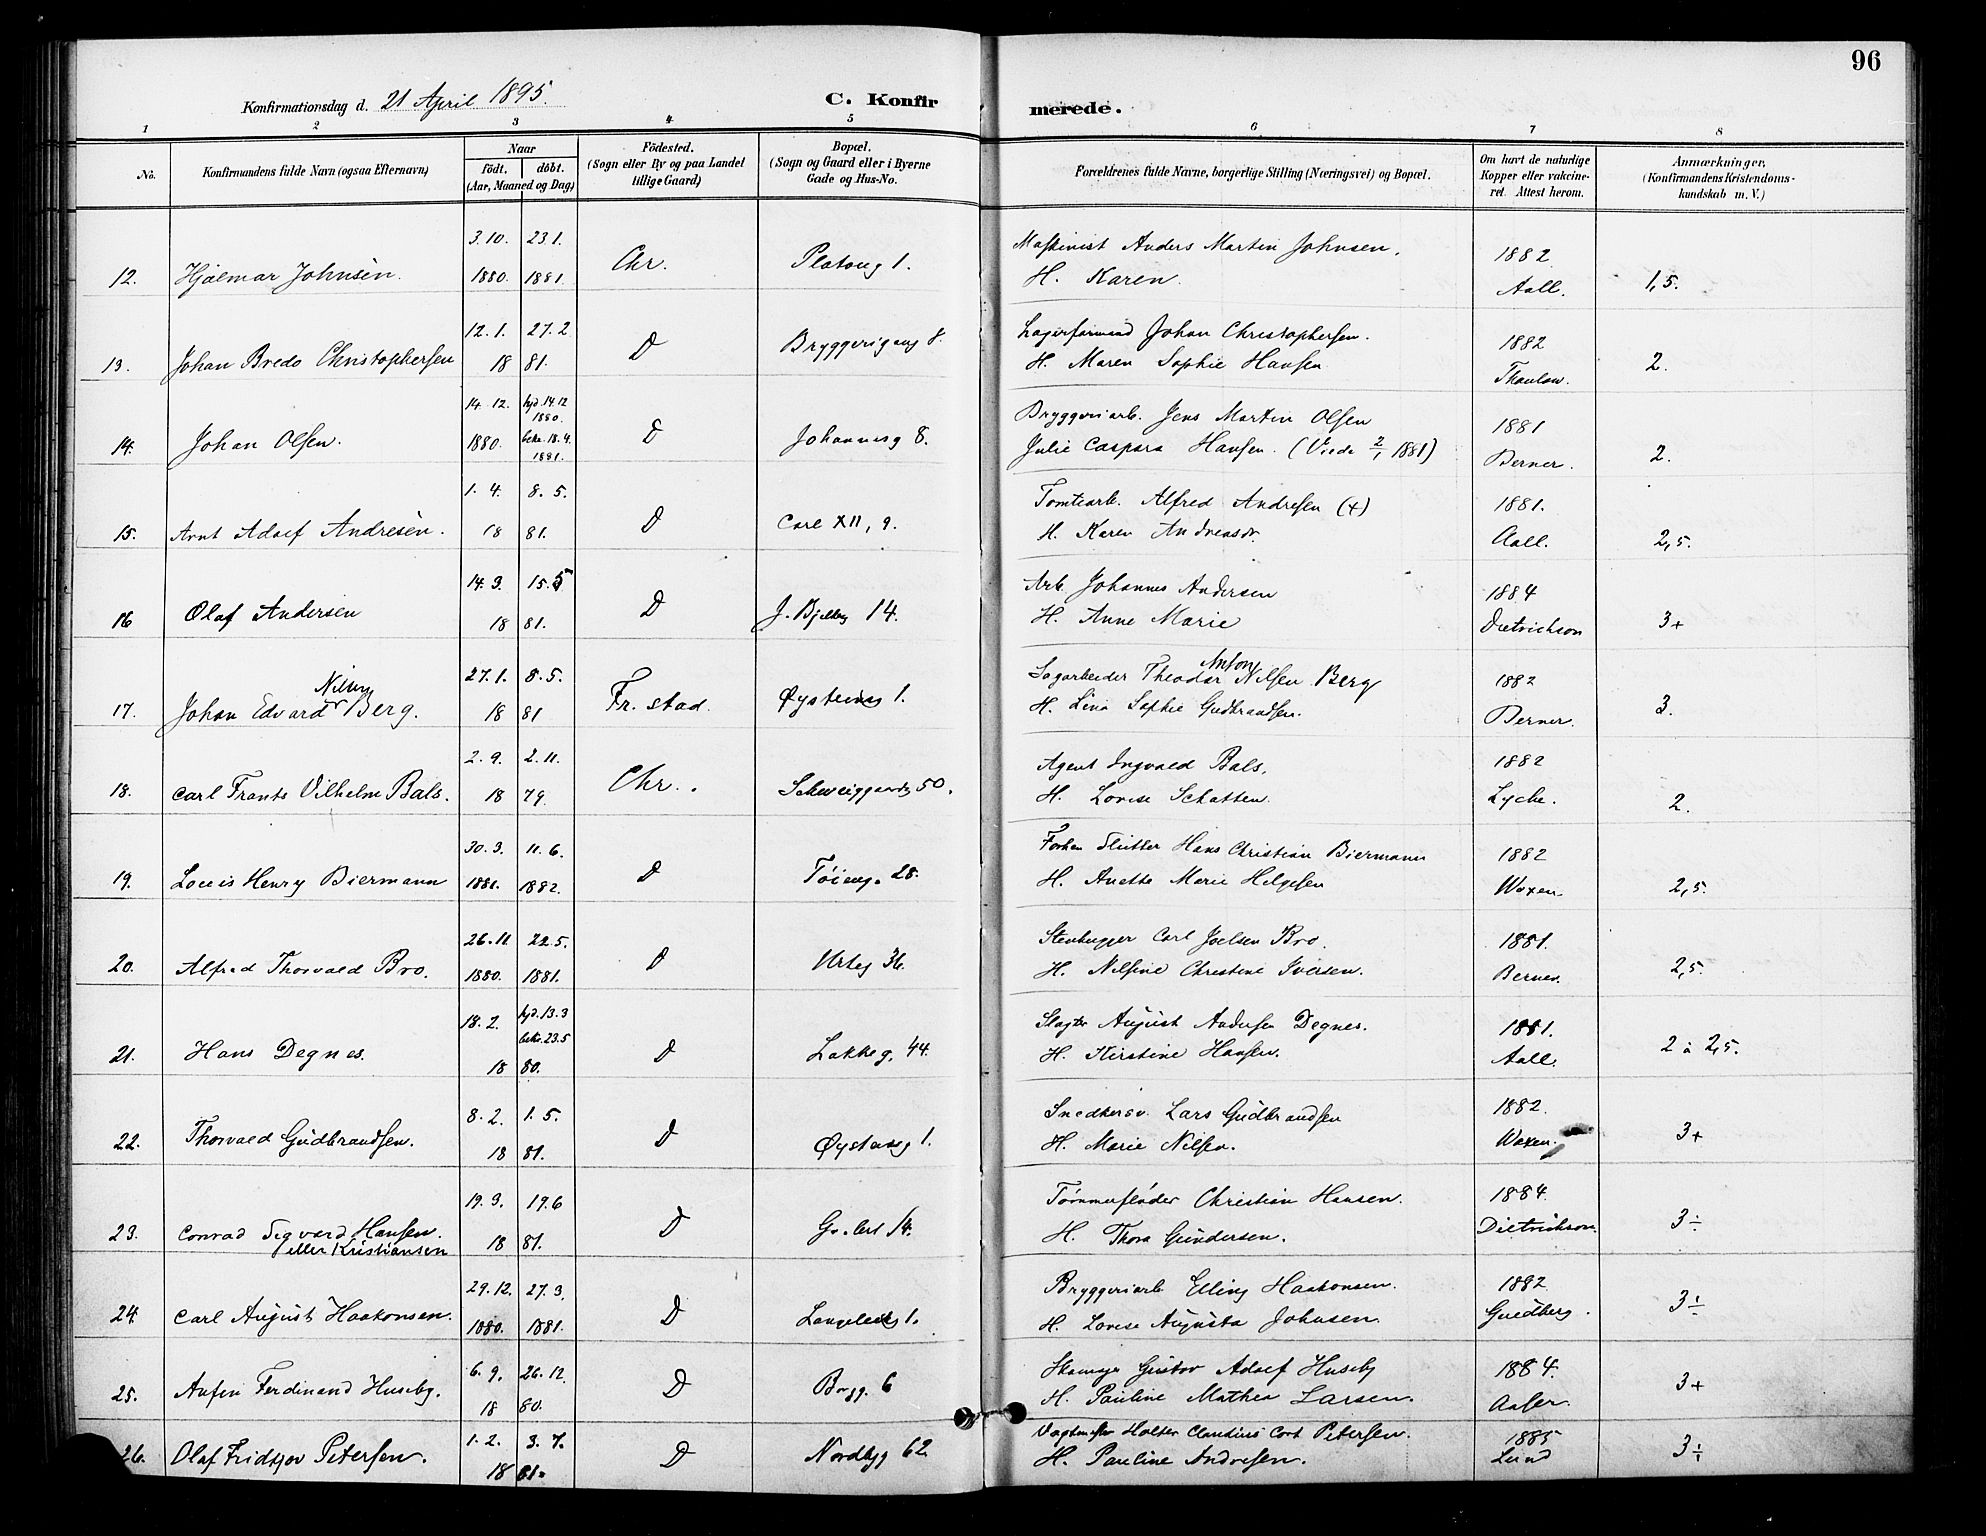 96
Konfirmationsdag d. 21 April 1895.
C. Konfirmerede.
1 2 3 4 5 6 7 8
No.
Konfirmandens fulde Navn (ogsaa Efternavn)
Naar
födt. döbt.
(Aar, Maaned og Dag)
Födested.
(Sogn eller By og paa Landet
tillige Gaard)
Bopæl.
(Sogn og Gaard eller i Byerne
Gade og Hus-No.
Forældrenes fulde Navne, borgerlige Stilling (Næringsvei) og Bopæl.
Om havt de naturlige
Kopper eller vakcine-
ret. Attest herom.
Anmærkninger,
(Konfirmandens Kristendoms-
kundskab m. V.)
3.10. 23.1. Maskinist Anders Martin Johnsen. 1882
12. Hjalmar Johnsen. 1880. 1881. Chr. Platoug 1. H. Karen. Aall. 1,5.
12.1. 27.2 Lagerformand Johan Christophersen. 1882
13. Johan Bredo Christophersen 18 81. D Bryggerigang 8. H. Maren Sophie Hansen Thaulow. 2.
14.12. hjd. 14.12 1880. Bryggeriarb. Jens Martin Olsen 1881
14. Johan Olsen. 1880. bekr. 18.4. 1881. D Johannesg 8. Julie Caspara Hansen. (Viede 2/1 1881) Berner. 2.
1.4. 8.5. Tomtearb. Alfred Andresen (+) 1881.
15. Arnt Adolf Andresen. 18 81. D Carl XII, 9. H. Karen Andreasdr. Aall. 2,5.
14.3. 15.5 Arb. Johannes Andersen 1884
16 Olaf Andersen 18 81. D J. Bjelkeg 14. H. Anne Marie Dietrichson 3+
Nilsen 27.1. 8.5. Sagarbeider Theodor Anton Nilsen Berg 1882
17. Johan Edvard Berg. 18 81 Fr.stad. Øysteinsg 1. H. Lina Sophie Gudbrandsen. Berner. 3.
2.9. 2.11. Agent Ingvald Bals, 1882
18. Carl Frants Vilhelm Bals. 18 79. Chr.. Schweiggaardsg 50. H. Lovise Schatten. Lyche. 2.
30.3. 11.6. Slutter Hans Christian Biermann 1882
19. Louis Henry Biermann 1881. 1882. D Töieng. 28. H. Anette Marie Helgesen Woxen 2,5.
26.11 22.5. Stenhugger Carl Joelsen Bro. 1881.
20. Alfred Thorvald Bro. 1880. 1881. D Urteg 36. H. Nilsine Christine Iversen. Berner. 2,5.
18.2. hjd. 13.3 bekr. 23.5 Slagter August Andersen Degnes. 1881.
21. Hans Degnes. 18 80. D Lakkeg. 44. H. Kirstine Hansen. Aall. 2 à 2,5.
8.2. 1.5. Snedkersv. Lars Gudbrandsen 1882.
22. Thorvald Gudbrandsen. 18 81. D Øystensg 1. H. Marie Nilsen. Woxen. 3+
19.3. 19.6 Tømmerfløder Christian Hansen. 1884.
23. Conrad Sigvard Hansen. 18 81. D 14. H. Thora Gundersen. Dietrichson. 3÷
eller Kristiansen
29.12. 27.3. Bryggeriarb Elling Haakonsen. 1882
24. Carl August Haakonsen. 1880. 1881. D Langeleg 1. H. Lovise Augusta Johnsen. Guldberg. 3÷
6.9. 26.12. Skomager Gustav Adolf Huseby 1884.
25. Anfin Ferdinand Huseby. 18 80. D Borgg. 6 H. Pauline Mathea Larsen. Aaser. 3+
1.2. 3.7. Vagtmester Halter Claudius Cort Petersen. 1885
26. Olaf Fridtjov Petersen. 18 81. D Nordbyg 62 H. Pauline Andresen. Lund 3÷